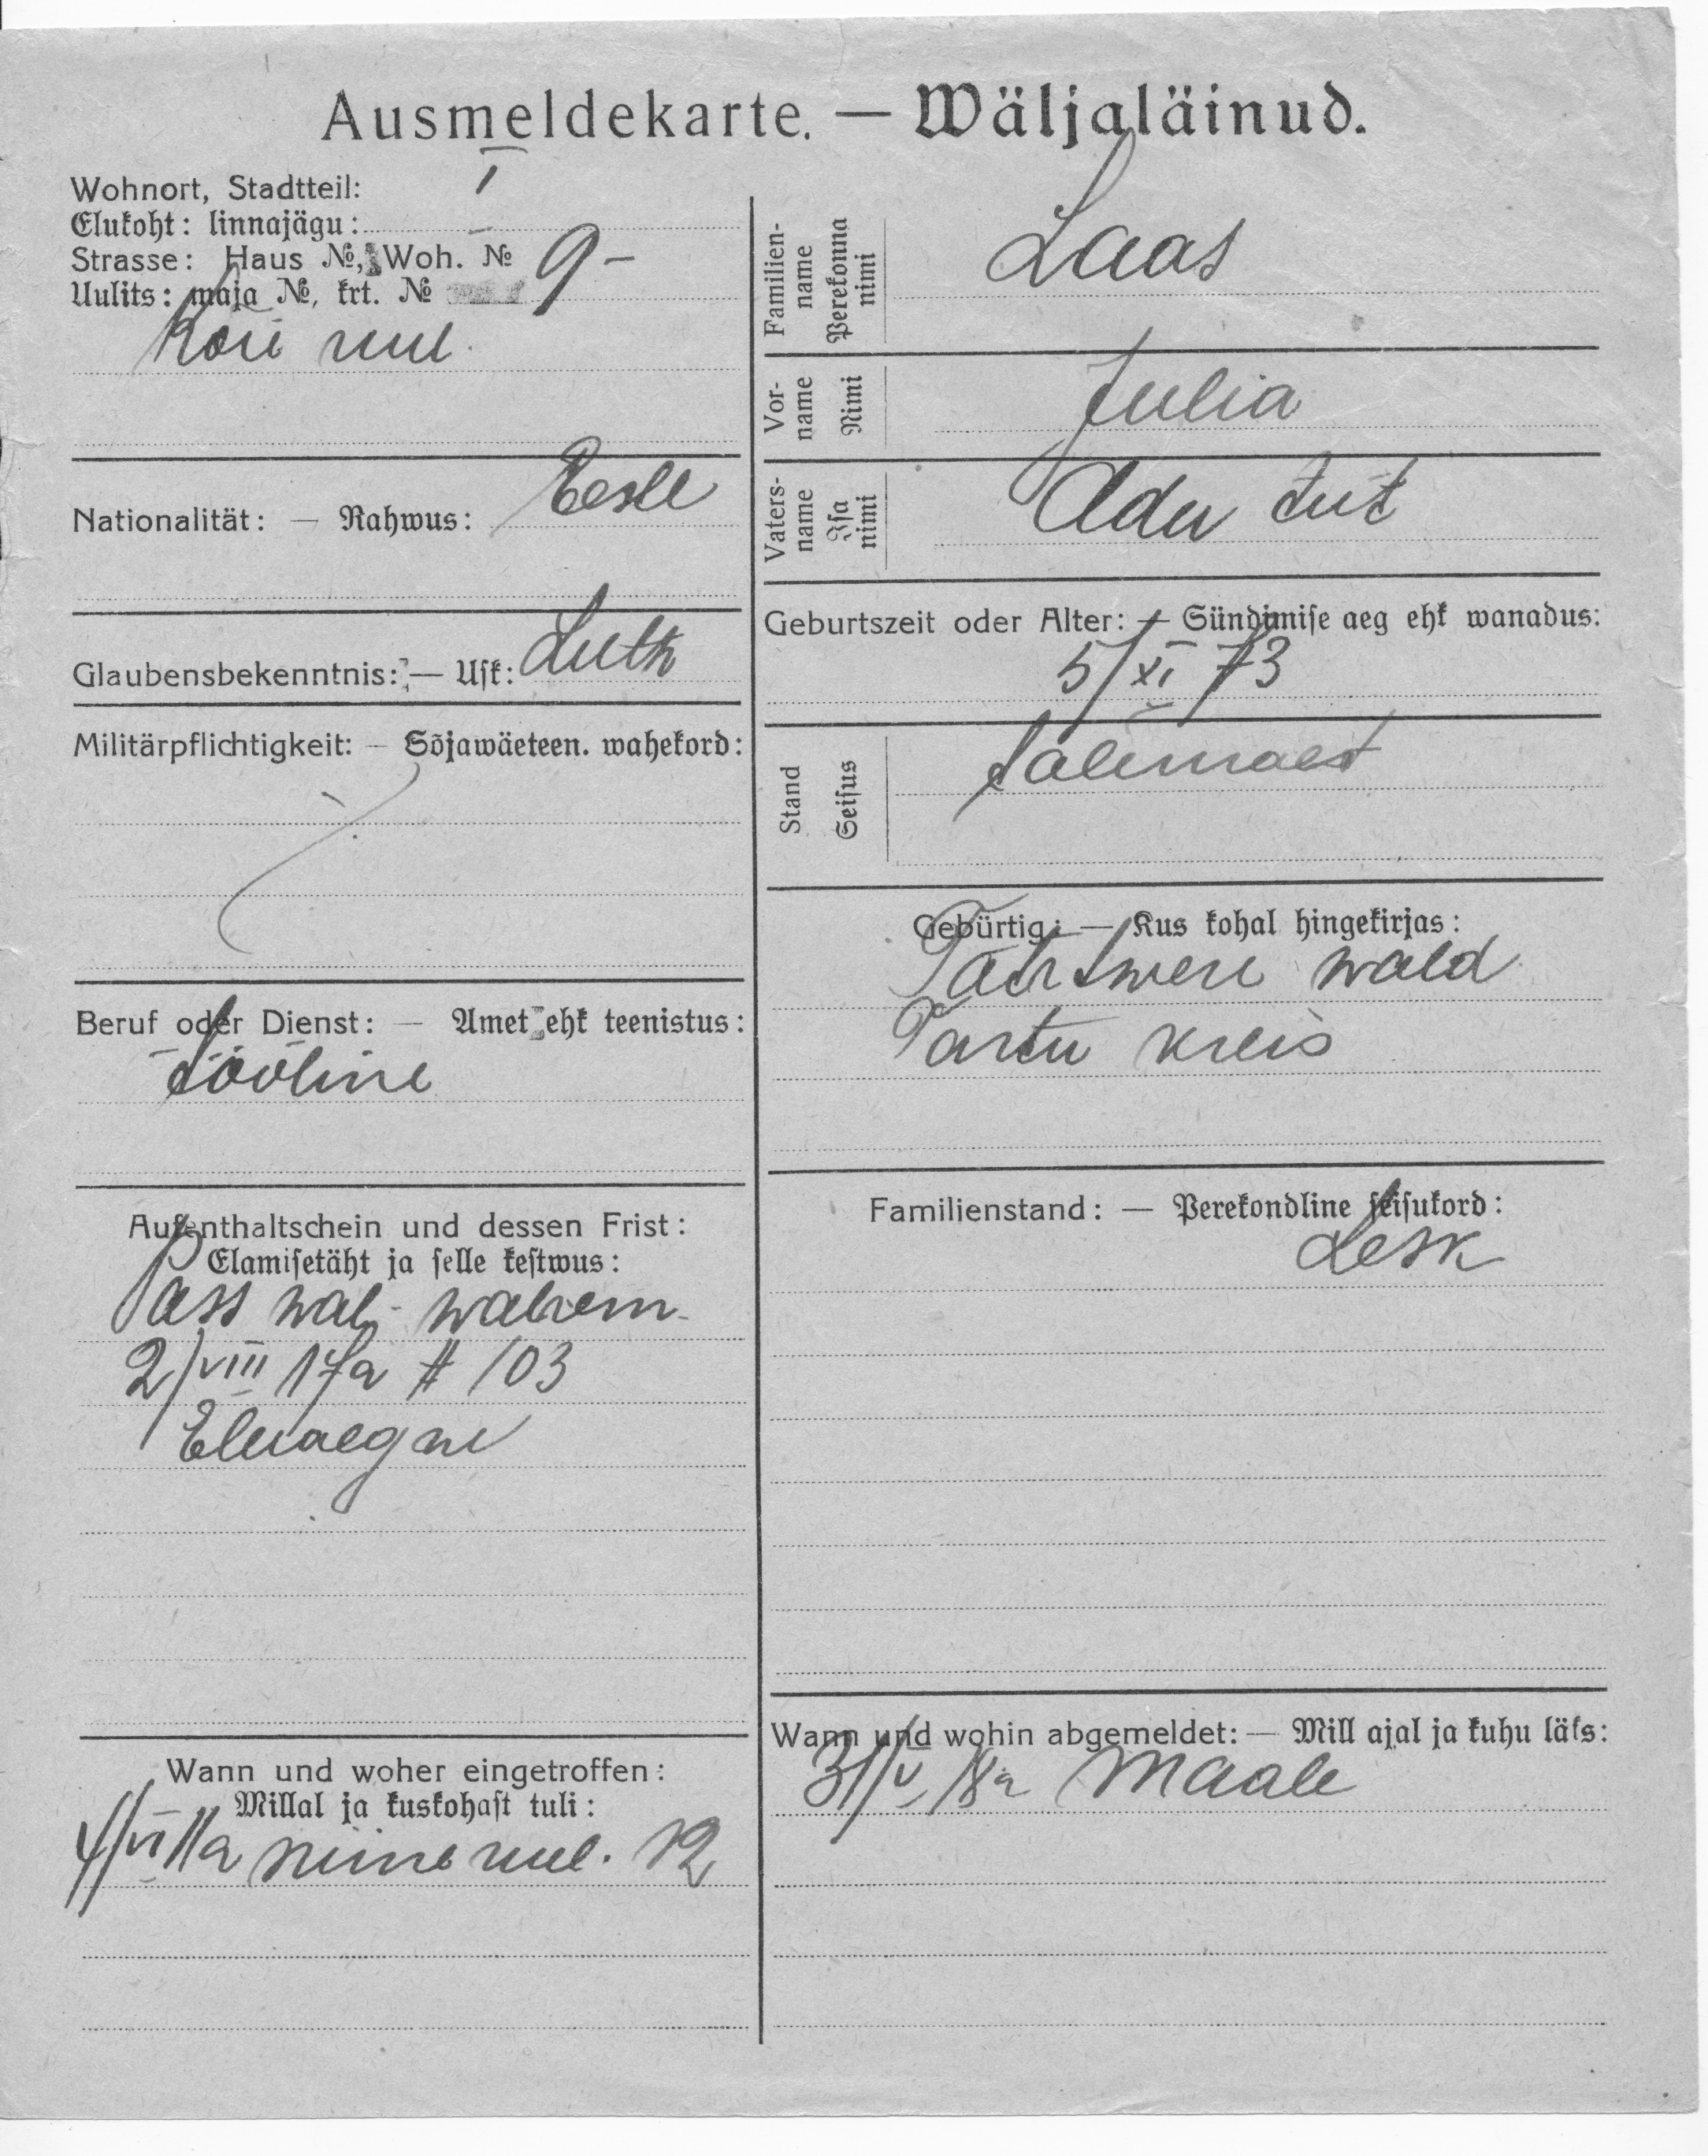 Ausmeldekarte. — Wäljaläinud.
Wohnort, Stadtteil: I
Elukoht: linnajägu:
Strasse: Haus №, Woh. № 9 –
Uulits: maja №, krt. №
uul.
Nationalität: — Rahwus: Eesti
Glaubensbekenntnis: — Usk: Luth
Militärpflichtigkeit: — Sõjawäeteen. wahekord:
Beruf oder Dienst: — Amet ehk teenistus:
Tööline
Aufenthaltschein und dessen Frist:
Elamisetäht ja selle kestwus:
Pass wal. wanem.
2/VIII 17a # 103
Eluaegne
Wann und woher eingetroffen:
Millal ja kuskohast tuli:
uul. 12
Familien-
name
Perekonna
nimi
Laas
Vor-
name
Nimi
Julia
Vaters-
name
Isa
nimi
Adu tüt
Geburtszeit oder Alter: — Sündimise aeg ehk wanadus:
5/XI 73
Stand
Seisus
talunaest
Gebürtig: — Kus kohal hingekirjas:
Tähtwere wald
Tartu kreis
Familienstand: — Perekondline seisukord:
Lesk
Wann und wohin abgemeldet: — Mill ajal ja kuhu läks:
31/V 18a Maale